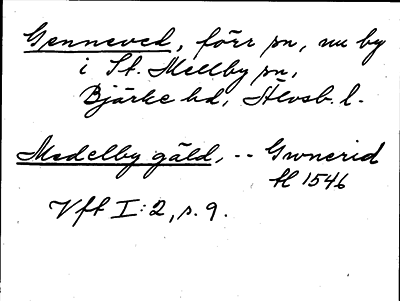 Genneved, förr sn, nu by
i St. Mellby sn,
Bjärke hd, Älvsb. l.
Medelby gäld, -- Gwnerid
H 1546
Vft I:2, s. 9.